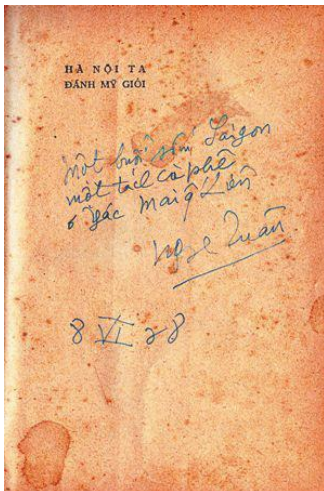 HÀ NỘI TA
ĐÁNH MỸ GIỎI
một buổi Saigon
một tách cà phê
ở gác Mai Liên
Tuân
8 VI 78